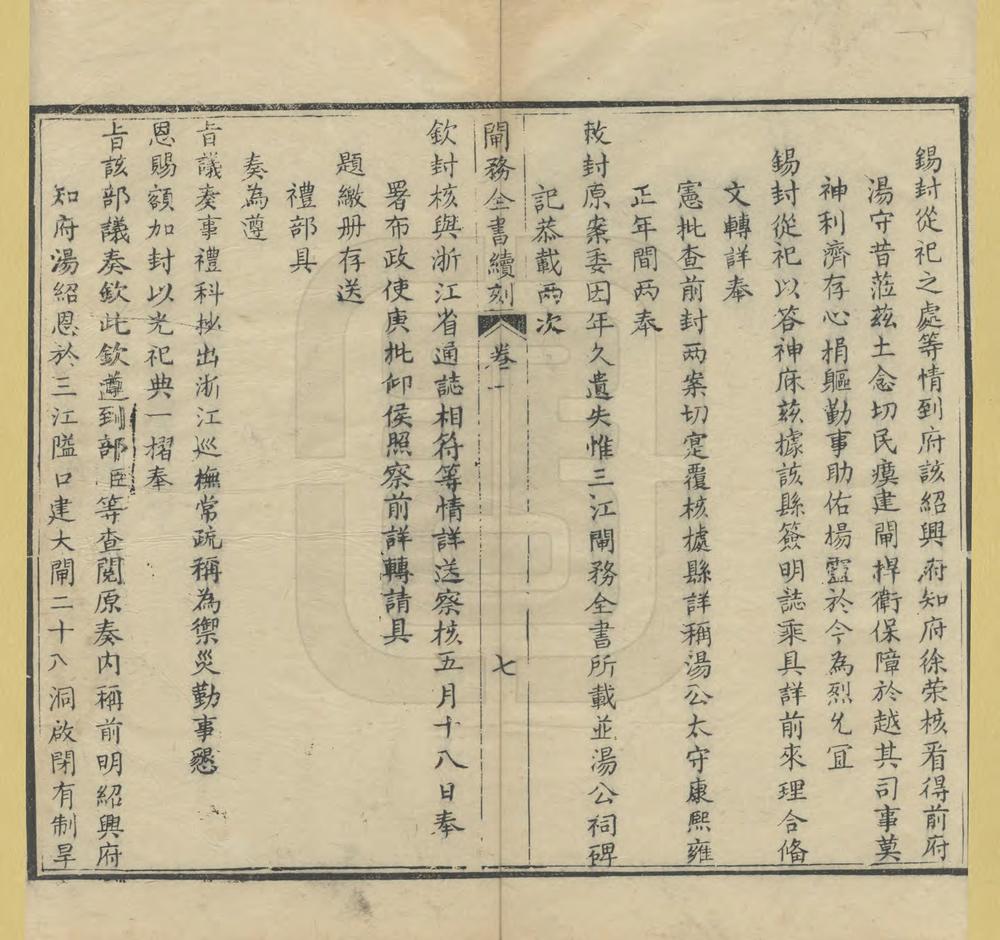 錫封從祀之處等情到府該紹興府知府徐荣核看得前府
湯守昔蒞茲土念切民瘼建閘捍衛保障於越其司事莫
神利濟存心捐軀勤事助佑楊靈於今為烈允宜
錫封從祀以答神庥茲據該縣簽明誌乘具詳前來理合俻
文轉詳奉
憲批查前封两案切寔覆核據縣詳稱湯公太守康熙雍
正年間两奉
敕封原案委因年久遺失惟三江閘務全書所載並湯公祠碑
記恭載两次
閘務全書續刻 卷一 七
欽封核與浙江省通誌相符等情詳送察核五月十八日奉
署布政使庚批仰侯照察前詳轉請具
題繳册存送
禮部具
奏為遵
旨議奏事禮科抄出浙江巡撫常疏稱為禦災勤事懇
恩賜額加封以光祀典一摺奉
旨該部議奏欽此欽遵到部臣等查閱原奏内稱前明紹興府
知府湯紹恩於三江隘口建大閘二十八洞啟閉有制旱